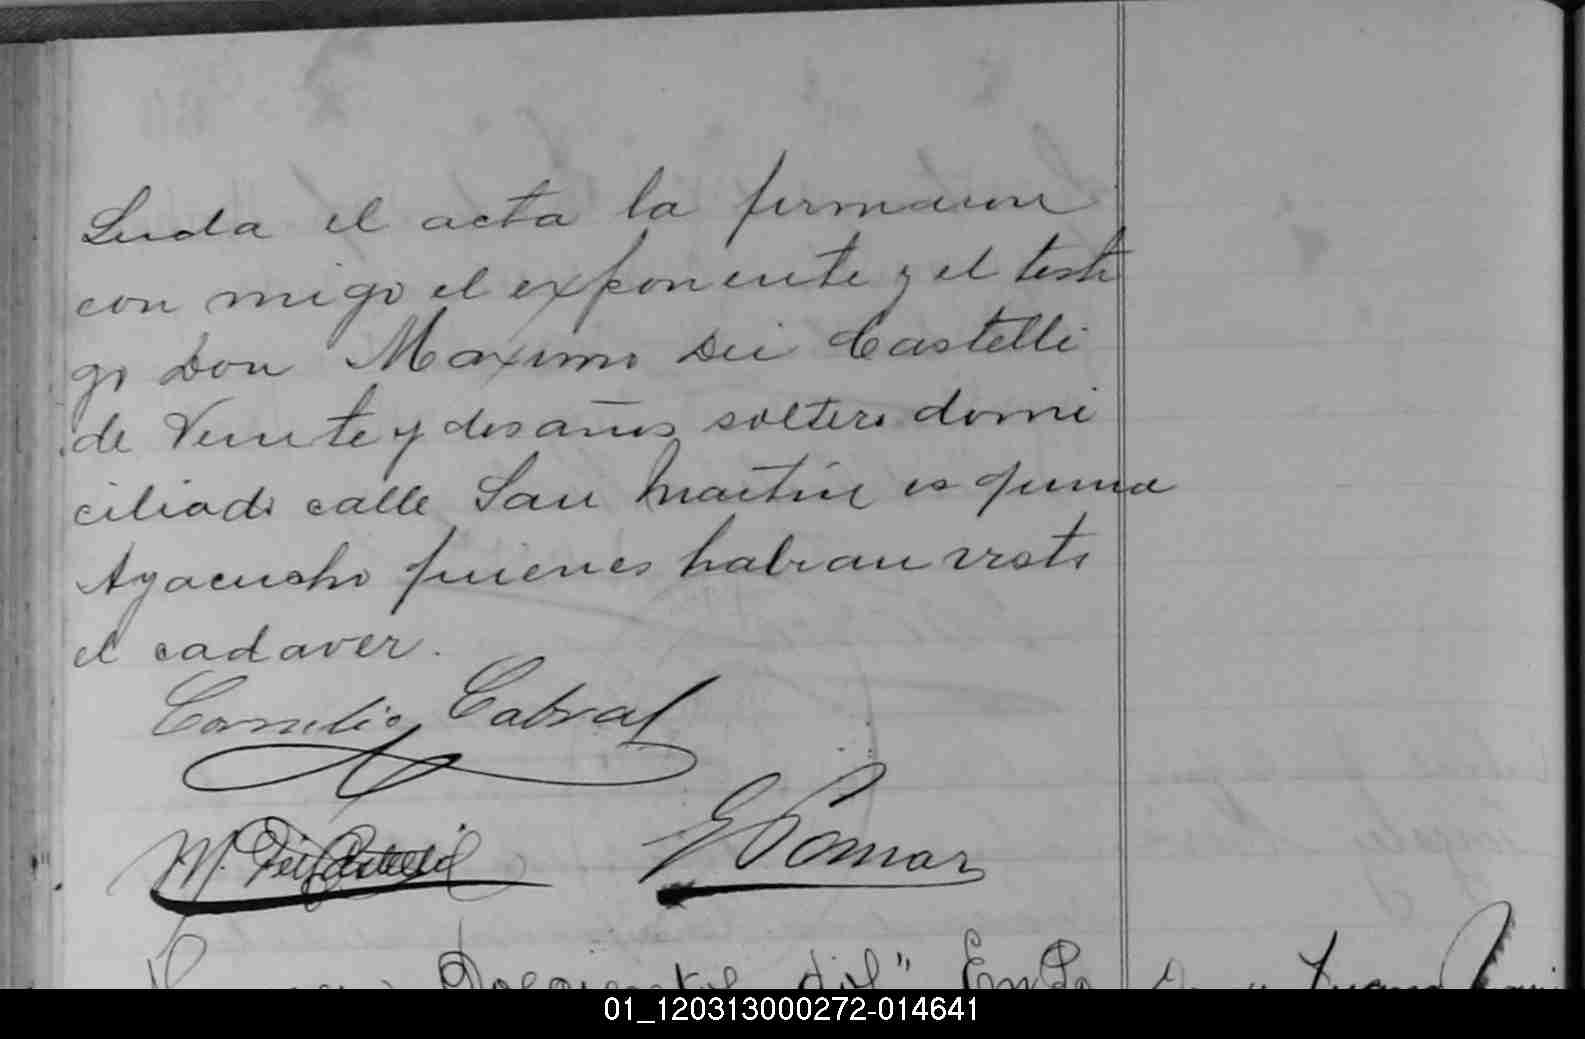 Leida el acta la firmaron
con migo el exponente y el testi
go Don Maximo Dei Castelli
de Veinte y dos años soltero domi
ciliado calle San Martin esquina
Ayacucho quienes habian visto
el cadaver.
Cornelio Cabral
M. Dei Castelli
E Pomar
Doscientos
01_120313000272-014641